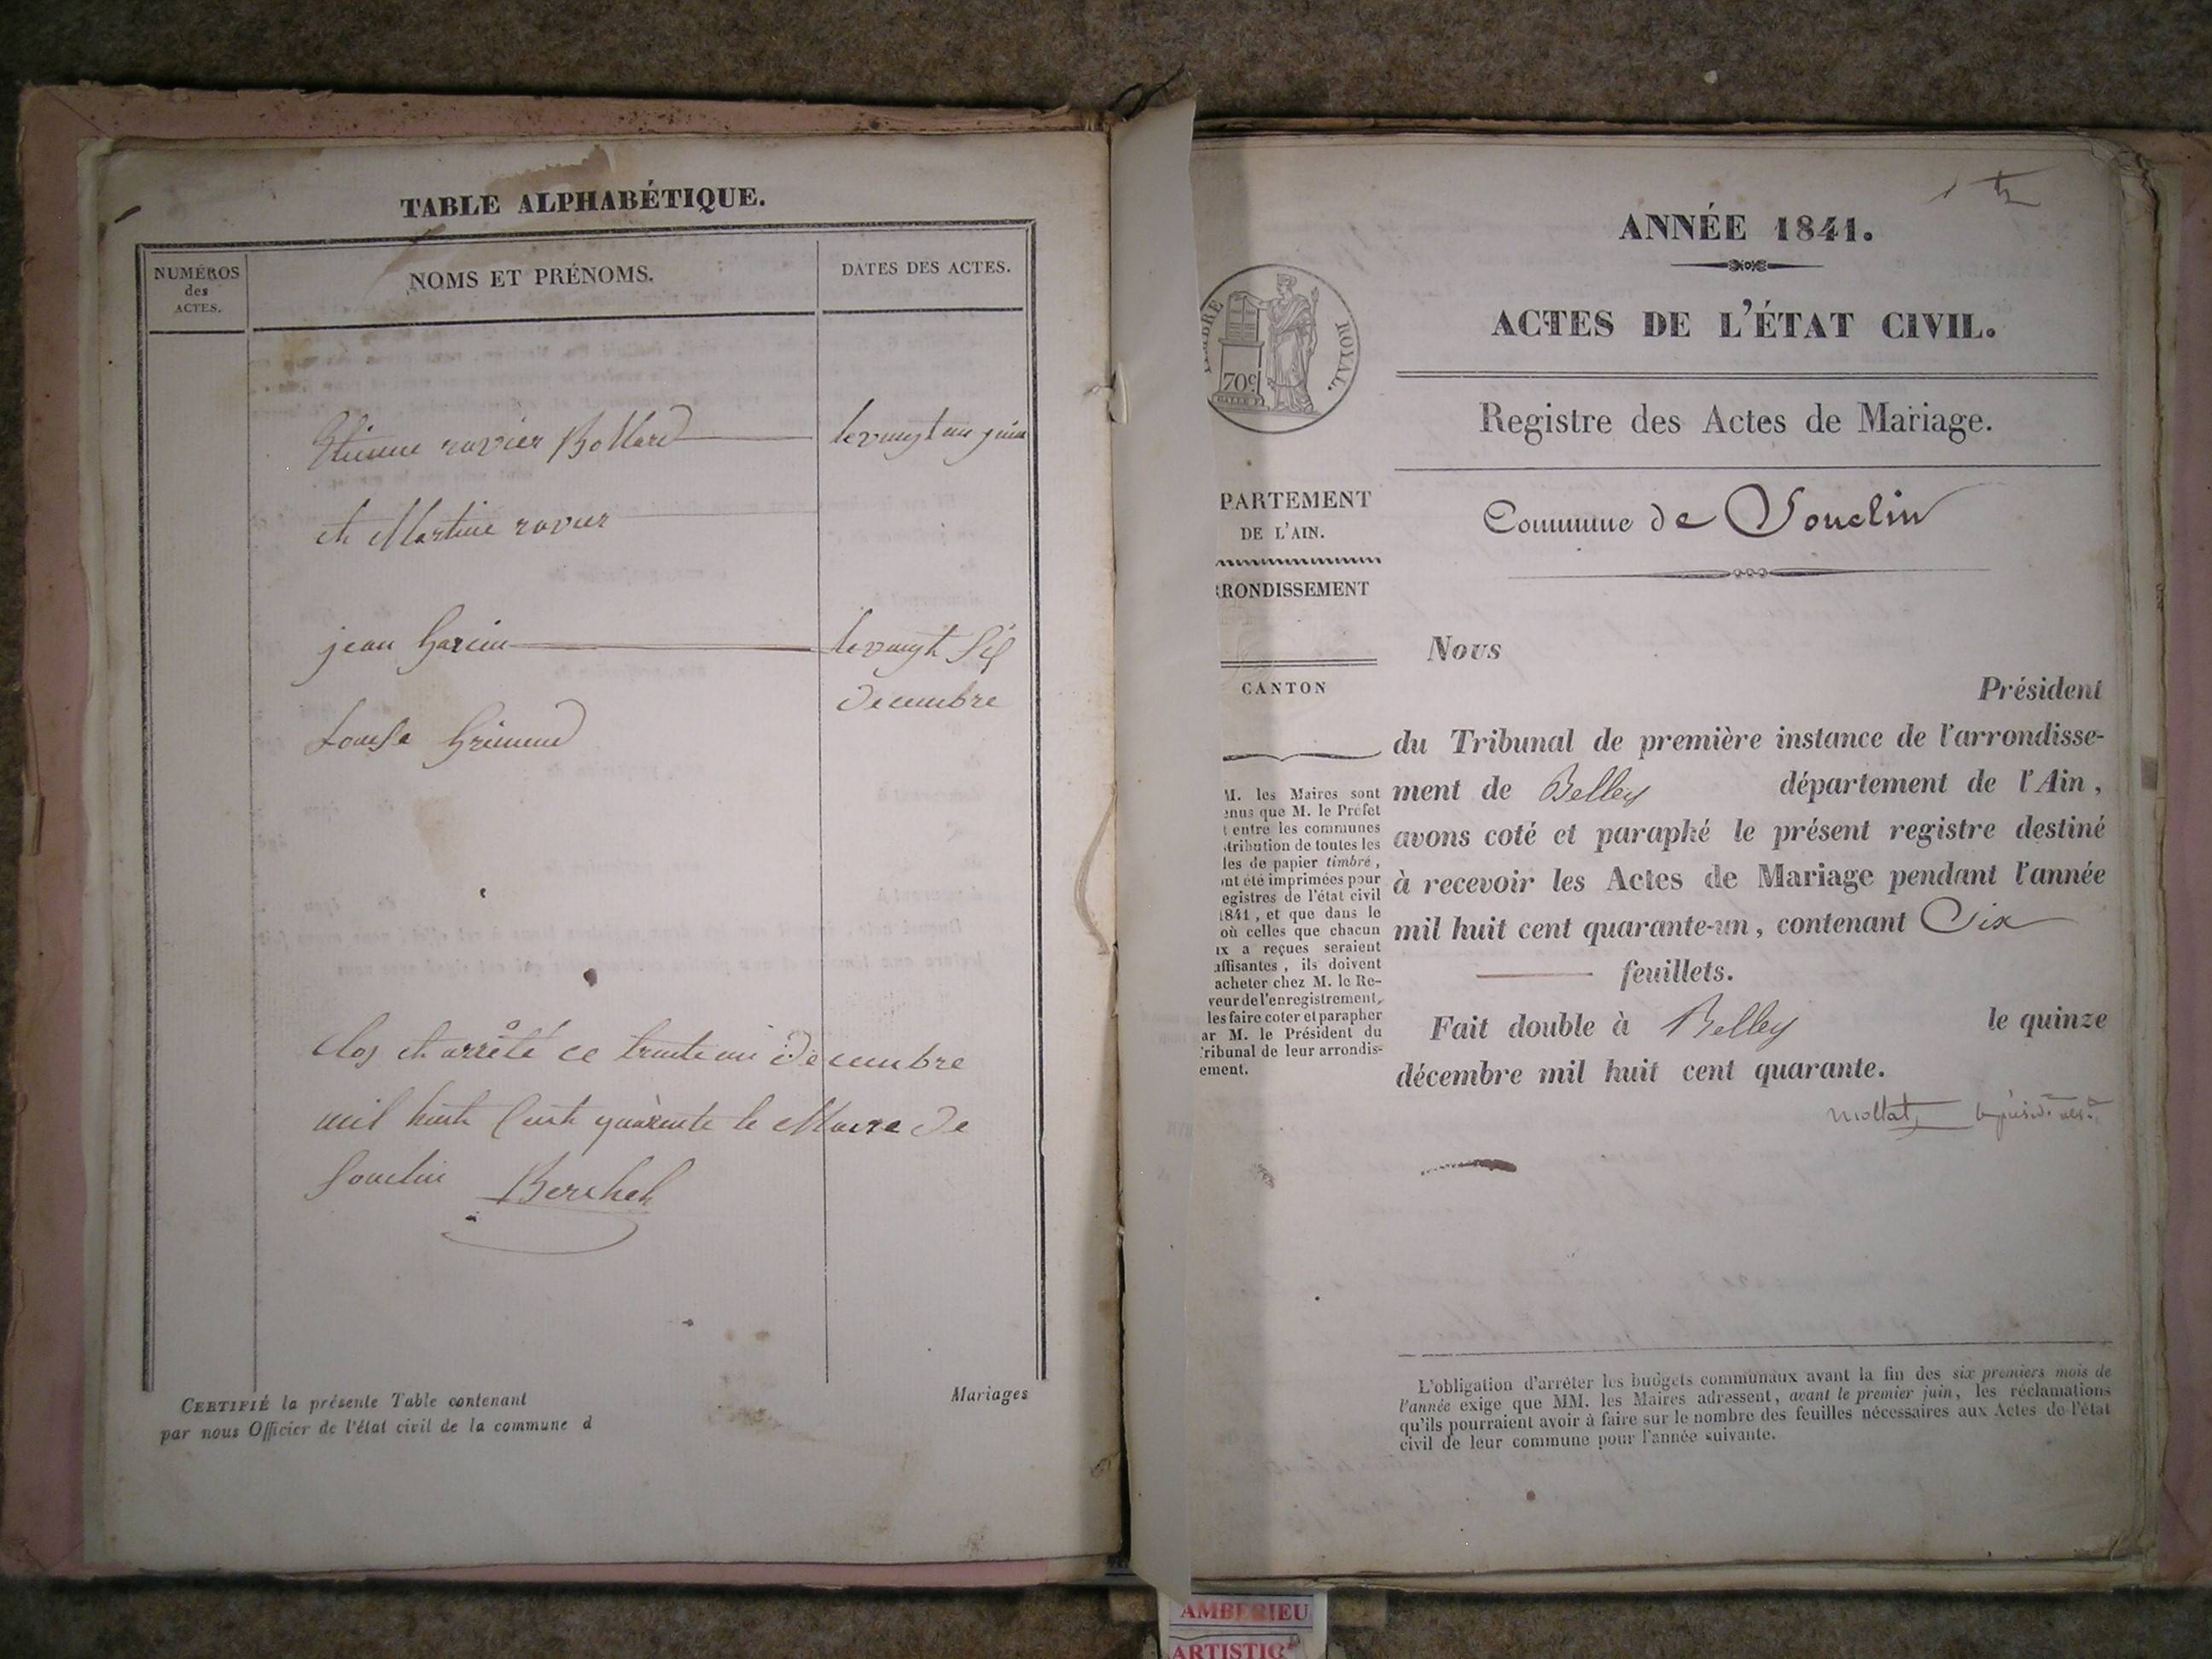 TABLE ALPHABÉTIQUE.
NUMÉROS
des
ACTES.
NOMS ET PRÉNOMS.
DATES DES ACTES.
Etienne ravier Bollard
le vingt un juin
et Martine ravier
jean Garcin
le vingt
decembre
Louise
Clos et arrêté ce trente un Decembre
mil huit Cent quarente le Maire de
Souclin
CERTIFIÉ la présente Table contenant
Mariages
par nous Officier de l'état civil de la commune d
ANNÉE 1841.
ACTES DE L'ÉTAT CIVIL.
ROYAL.
70c
Registre des Actes de Mariage.
PARTEMENT
DE L'AIN.
Commune de Souclin
RONDISSEMENT
CANTON
Nous
Président
du Tribunal de première instance de l'arrondisse-
ment de Belley département de l'Ain,
avons coté et paraphé le présent registre destiné
à recevoir les Actes de Mariage pendant l'année
mil huit cent quarante-un, contenant Six
feuillets.
Fait double à Belley le quinze
décembre mil huit cent quarante.
Mollat
M. les Maires sont
enus que M. le Préfet
t entre les communes
tribution de toutes les
les de papier timbré,
nt été imprimées pour
egistres de l'état civil
1841, et que dans le
où celles que chacun
ux a reçues seraient
uffisantes, ils doivent
acheter chez M. le Re-
veur de l'enregistrement,
les faire coter et parapher
ar M. le Président du
ribunal de leur arrondis-
ement.
L'obligation d'arrêter les budgets communaux avant la fin des six premiers mois de
l'année exige que MM. les Maires adressent, avant le premier juin, les réclamations
qu'ils pourraient avoir à faire sur le nombre des feuilles nécessaires aux Actes de l'état
civil de leur commune pour l'année suivante.
AMBERIEU
ARTISTIC